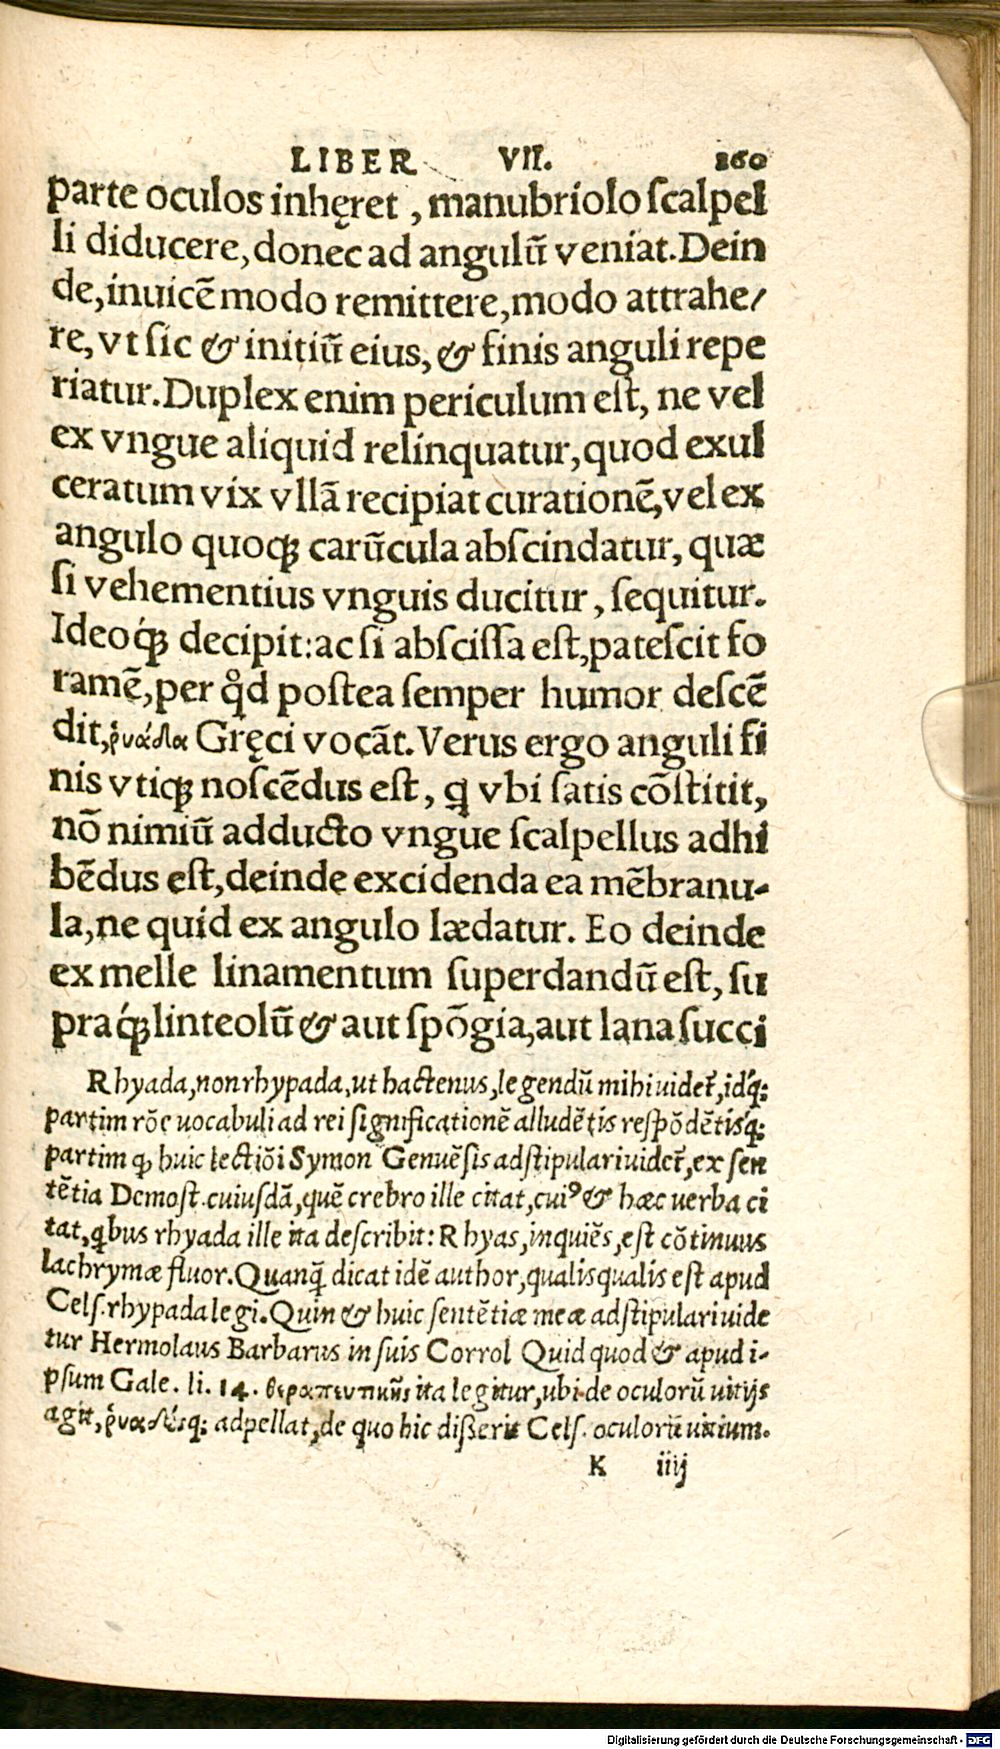 LIBER VII. 160
parte oculos inhęret, manubriolo ſcalpel
li diducere, donec ad angulũ veniat. Dein
de, inuicẽ modo remittere, modo attrahe/
re, vt ſic & initiũ eius, & finis anguli repe
riatur. Duplex enim periculum eſt, ne vel
ex vngue aliquid relinquatur, quod exul
ceratum vix vllã recipiat curationẽ, vel ex
angulo quoqꝫ carũcula abſcindatur, quæ
ſi vehementius vnguis ducitur, ſequitur.
Ideoqꝫ́ decipit: ac ſi abſciſſa eſt, pateſcit fo
ramẽ, per qͦd poſtea ſemper humor deſcẽ
dit, ῥυάδα Gręci vocãt. Verus ergo anguli fi
nis vtiqꝫ noſcẽdus eſt, ꝗ vbi ſatis cõſtitit,
nõ nimiũ adducto vngue ſcalpellus adhi
bẽdus eſt, deinde excidenda ea mẽbranu-
la, ne quid ex angulo lædatur. Eo deinde
ex melle linamentum ſuperdandũ eſt, ſu
praqꝫ́ linteolũ & aut ſpõgia, aut lana ſucci
Rhyada, non rhypada, ut hactenus, legendũ mihi uidet᷑, idq́;
partim rõe uocabuli ad rei ſignificationẽ alludẽtis reſpõdẽtisq́;
partim ꝙ huic lectiõi Symon Genuẽſis adſtipulari uidet᷑, ex ſen
tẽtia Demoſt. cuiuſdã, quẽ crebro ille citat, cuiꝰ & hæc uerba ci
tat, ꝗbus rhyada ille ita deſcribit: Rhyas, inquiẽs, eſt cõtinuus
lachrymæ fluor. Quanq̃ dicat idẽ author, qualisqualis eſt apud
Celſ. rhypada legi. Quin & huic ſentẽtiæ meæ adſtipulari uide
tur Hermolaus Barbarus in ſuis Corrol Quid quod & apud i-
pſum Gale. li. 14. θεραπευτικῆς ita legitur, ubi de oculorũ uitijs
agit, ῥυάδας q; adpellat, de quo hic diſſerit Celſ. oculorũ uitium.
K iiij
Digitalisierung gefördert durch die Deutsche Forschungsgemeinschaft - DFG